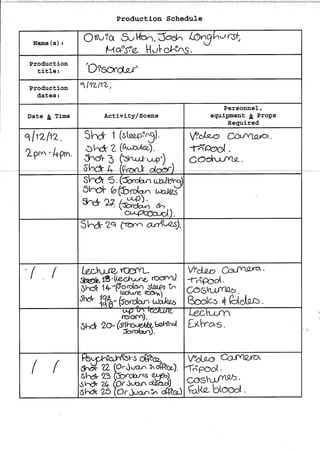 Production Schedule
Name(s):
Olivia Sutton, Josh Longhurst,
Maisie Hutchins.
Production title:
'Disorder'
Production dates:
9/12/12,
Date & Time
Activity/Scene
Personnel, equipment & Props Required
9/12/12.
2pm - 4pm.
Shot 1 (sleeping).
Shot 2 (Awake).
Shot 3 ('Shut up')
Shot 4 (Front door)
Video Camera.
Tripod.
Costume.
Shot 5. (Jordan walking)
Shot 6 (Jordan wakes up).
Shot 22 (Jordan in cupboard).
Shot 29 (Tom arrives).
/ /
Lecture room.
Shot 14 - (Jordan sleeps in lecture room)
Shot 19A - 19B - (Jordan wakes up in lecture room),
Shot 20 - (silhouette behind Jordan).
Video Camera.
Tripod.
Costumes.
Books & folders.
Lecturn
Extras.
/ /
Psychiatrists office,
Shot 22 (Or Juan in office),
Shot 23 (Jordans eyes)
Shot 24 (Or Juan dead)
Shot 25 (Or Juan in office)
Video Camera
Tripod.
costumes.
Fake blood.